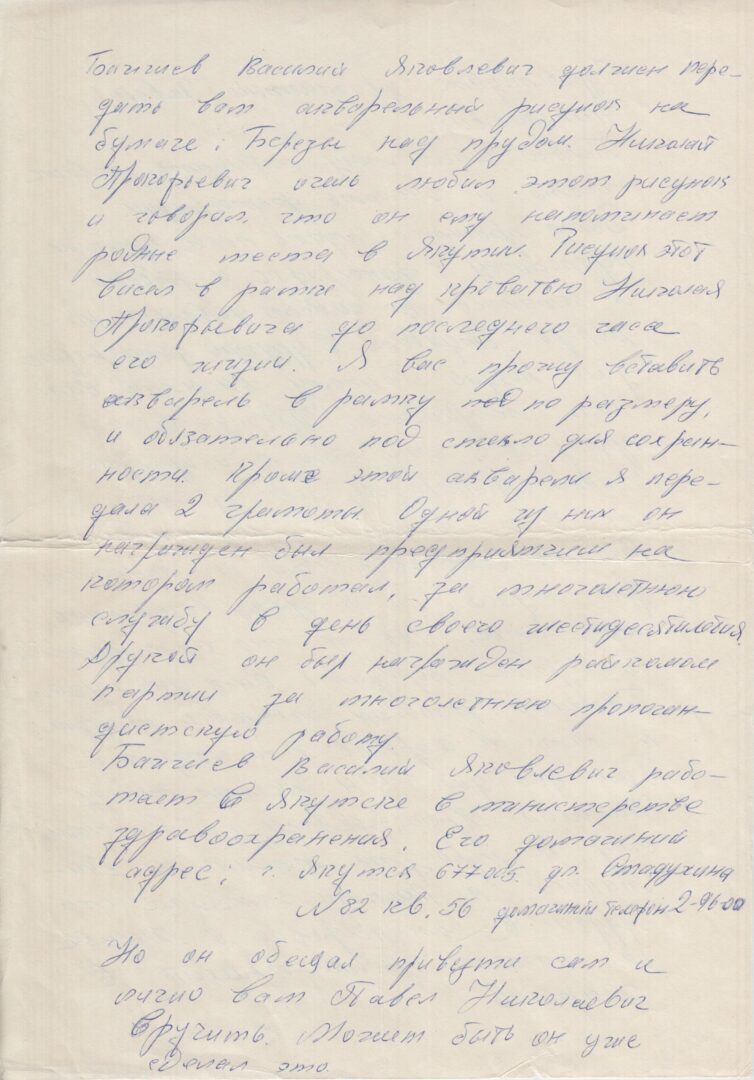 Баишев Василий Яковлевич должен пере-
дать вам акварельный рисунок на
бумаге: Березы над прудом. Николай
Прокопьевич очень любил этот рисунок
и говорил, что он ему напоминает
родные места в Якутии. Рисунок этот
висел в рамке над кроватью Николая
Прокопьевича до последнего часа
его жизни. Я вас прошу вставить
акварель в рамку по размеру,
и обязательно под стекло для сохран-
ности. Кроме этой акварели я пере-
дала 2 грамоты. Одной из них он
награжден был предприятием на
котором работал, за многолетнюю
службу в день своего шестидесятилетия.
Другой он был награжден райкомом
партии за многолетнюю пропоган-
дистскую работу.
Баишев Василий Яковлевич рабо-
тает в Якутске в министерстве
здравоохранения. Его домашний
адрес: г. Якутск 677005. ул. Стадухина
N 82 кв. 56 домашний телефон 2-96-00
Но он обещал привезти сам и
лично вам Павел Николаевич
вручить. Может быть он уже
сделал это.